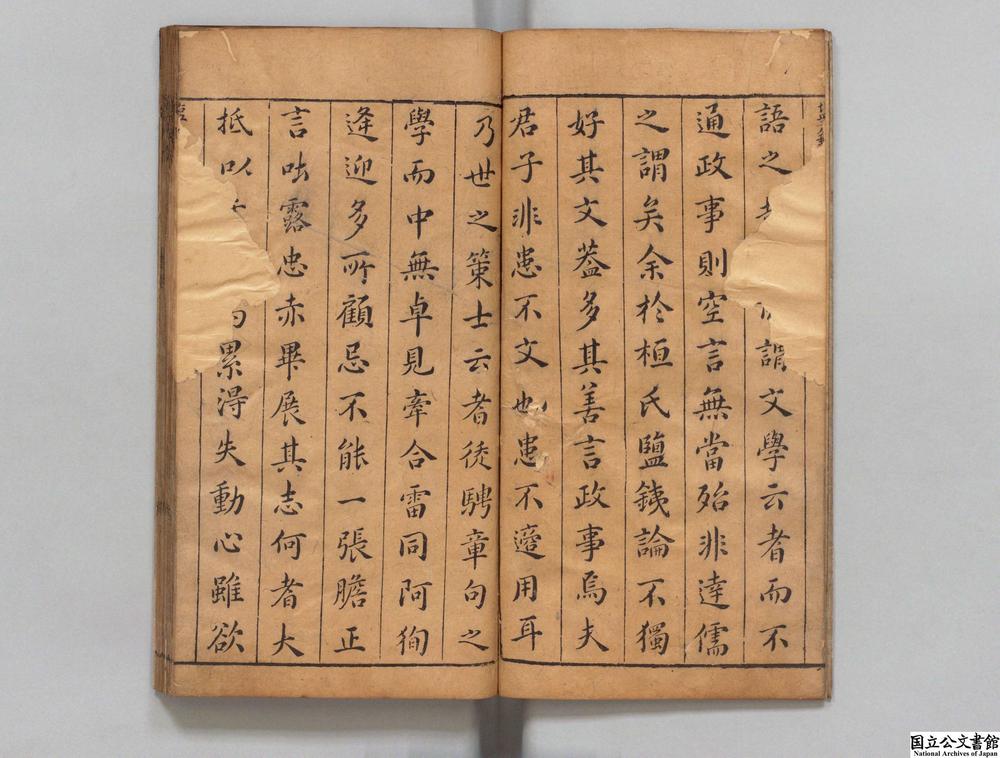 語之 謂文學云者而不
通政事則空言無當殆非達儒
之謂矣余於桓氏鹽鐵論不獨
好其文葢多其善言政事焉夫
君子非患不文也患不適用耳
乃世之策士云者徒騁章句之
學而中無卓見牽合雷同阿徇
逢迎多所顧忌不能一張膽正
言吐露忠赤畢展其志何者大
抵以 累得失動心雖欲
国立公文書館
National Archives of Japan